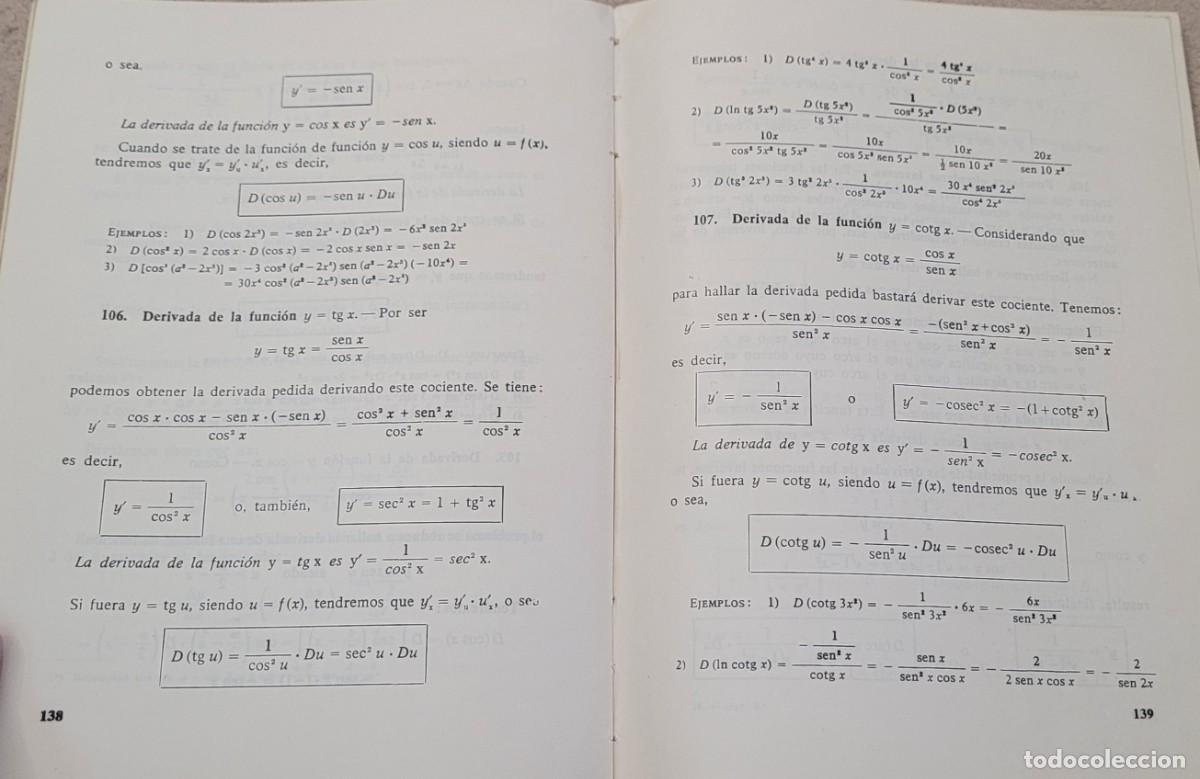 o sea,
y′ = −sen x
La derivada de la función y = cos x es y′ = −sen x.
Cuando se trate de la función de función y = cos u, siendo u = f(x),
tendremos que y′ₓ = y′ᵤ · u′ₓ, es decir,
D (cos u) = −sen u · Du
EJEMPLOS: 1) D (cos 2x³) = −sen 2x³ · D (2x³) = −6x² sen 2x³
2) D (cos² x) = 2 cos x · D (cos x) = −2 cos x sen x = −sen 2x
3) D [cos³ (a² − 2x⁵)] = −3 cos² (a² − 2x⁵) sen (a² − 2x⁵) (−10x⁴) =
= 30x⁴ cos² (a² − 2x⁵) sen (a² − 2x⁵)
106. Derivada de la función y = tg x. — Por ser
y = tg x = sen x / cos x
podemos obtener la derivada pedida derivando este cociente. Se tiene:
y′ = cos x · cos x − sen x · (−sen x) / cos² x = cos² x + sen² x / cos² x = 1 / cos² x
es decir,
y′ = 1 / cos² x o, también, y′ = sec² x = 1 + tg² x
La derivada de la función y = tg x es y′ = 1 / cos² x = sec² x.
Si fuera y = tg u, siendo u = f(x), tendremos que y′ₓ = y′ᵤ · u′ₓ, o sea
D (tg u) = 1 / cos² u · Du = sec² u · Du
138
EJEMPLOS: 1) D (tg⁴ x) = 4 tg³ x · 1 / cos² x = 4 tg³ x / cos² x
2) D (ln tg 5x²) = D (tg 5x²) / tg 5x² = 1 / cos² 5x² · D (5x²) / tg 5x² =
= 10x / cos² 5x² tg 5x² = 10x / cos 5x² sen 5x² = 10x / ½ sen 10 x² = 20x / sen 10 x²
3) D (tg³ 2x⁵) = 3 tg² 2x⁵ · 1 / cos² 2x⁵ · 10x⁴ = 30 x⁴ sen² 2x⁵ / cos⁴ 2x⁵
107. Derivada de la función y = cotg x. — Considerando que
y = cotg x = cos x / sen x
para hallar la derivada pedida bastará derivar este cociente. Tenemos:
y′ = sen x · (−sen x) − cos x cos x / sen² x = −(sen² x + cos² x) / sen² x = − 1 / sen² x
es decir,
y′ = − 1 / sen² x o y′ = −cosec² x = −(1 + cotg² x)
La derivada de y = cotg x es y′ = − 1 / sen² x = −cosec² x.
Si fuera y = cotg u, siendo u = f(x), tendremos que y′ₓ = y′ᵤ · u ₓ
o sea,
D (cotg u) = − 1 / sen² u · Du = −cosec² u · Du
EJEMPLOS: 1) D (cotg 3x²) = − 1 / sen² 3x² · 6x = − 6x / sen² 3x²
2) D (ln cotg x) = − 1 / sen² x / cotg x = − sen x / sen² x cos x = − 2 / 2 sen x cos x = − 2 / sen 2x
139
todocoleccion